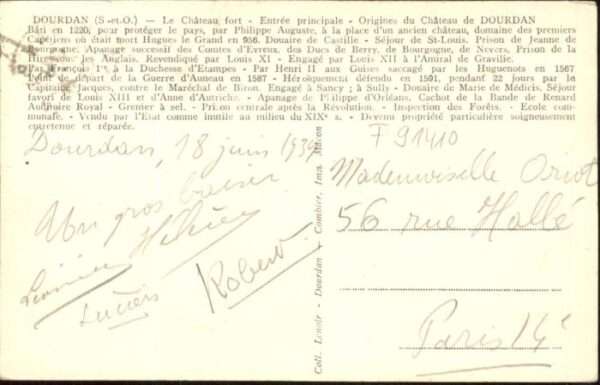 DOURDAN (S.-et-O.) — Le Château fort - Entrée principale - Origines du Château de DOURDAN
Bâti en 1220, pour protéger le pays, par Philippe Auguste, à la place d'un ancien château, domaine des premiers
Capétiens où était mort Hugues le Grand en 956. Douaire de Castille - Séjour de St-Louis, Prison de Jeanne de
Bourgogne, Apanage successif des Comtes d'Evreux, des Ducs de Berry, de Bourgogne, de Nevers, Prison de la
Hire sous les Anglais. Revendiqué par Louis XI - Engagé par Louis XII à l'Amiral de Graville.
Par François 1er à la Duchesse d'Etampes - Par Henri II aux Guises saccagé par les Huguenots en 1567
Point de départ à la Guerre d'Auneau en 1587 - Héroïquement défendu en 1591, pendant 22 jours par le
Capitaine Jacques, contre le Maréchal de Biron. Engagé à Sancy ; à Sully - Douaire de Marie de Médicis, Séjour
favori de Louis XIII et d'Anne d'Autriche. - Apanage de Philippe d'Orléans, Cachot de la Bande de Renard
Auditoire Royal - Grenier à sel - Prison centrale après la Révolution. - Inspection des Forêts. - Ecole com-
munale. - Vendu par l'Etat comme inutile au milieu du XIXe s. - Devenu propriété particulière soigneusement
entretenue et réparée.
F 91410
Dourdan, 18 juin 193
Un gros baiser
Lucien
Robert
Coll. Lenoir - Dourdan - Combier, Imp. Macon
Mademoiselle Oriot
56 rue Hallé
Paris 14e